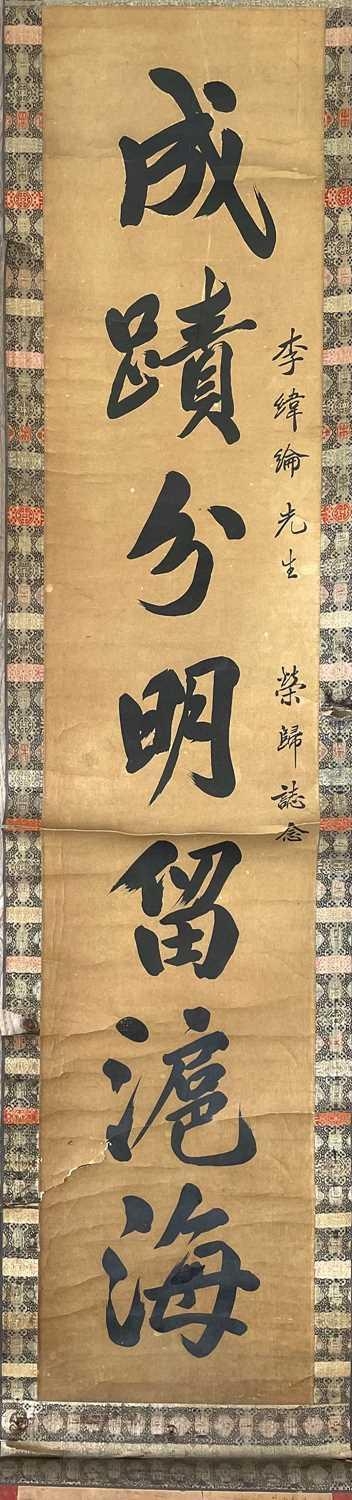 李緯綸先生 榮歸誌念
成蹟分明留滬海